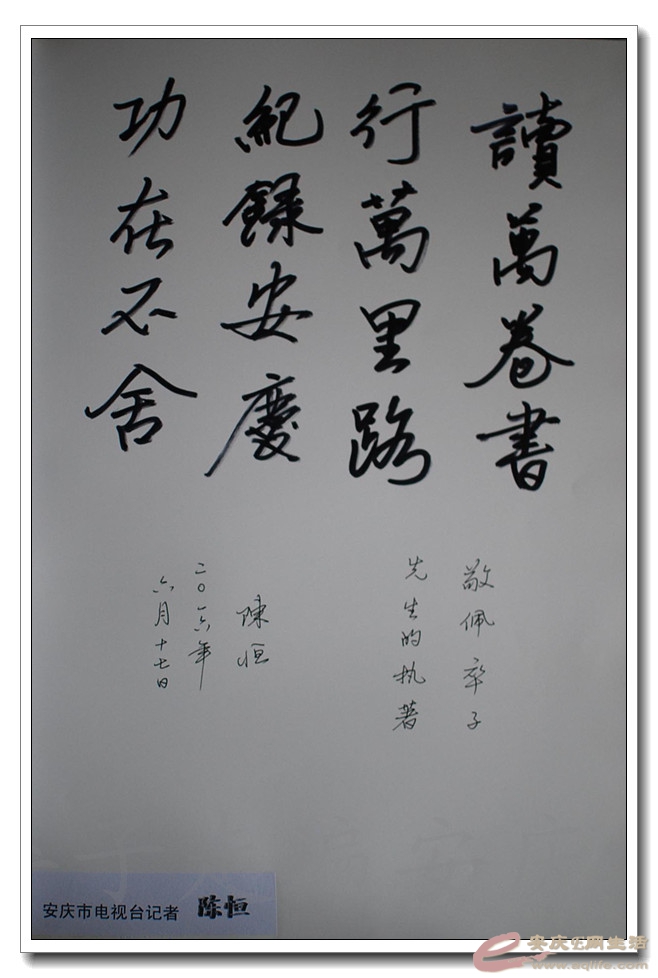 讀萬卷書
行萬里路
紀錄安慶
功在不舍
敬佩辛子
先生的执著
陳恒
二〇一六年
六月十七日
安庆市电视台记者 陈恒
安庆E网生活
www.aqlife.com